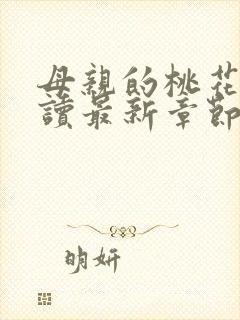 母親的桃花
讀最新章節
明妍